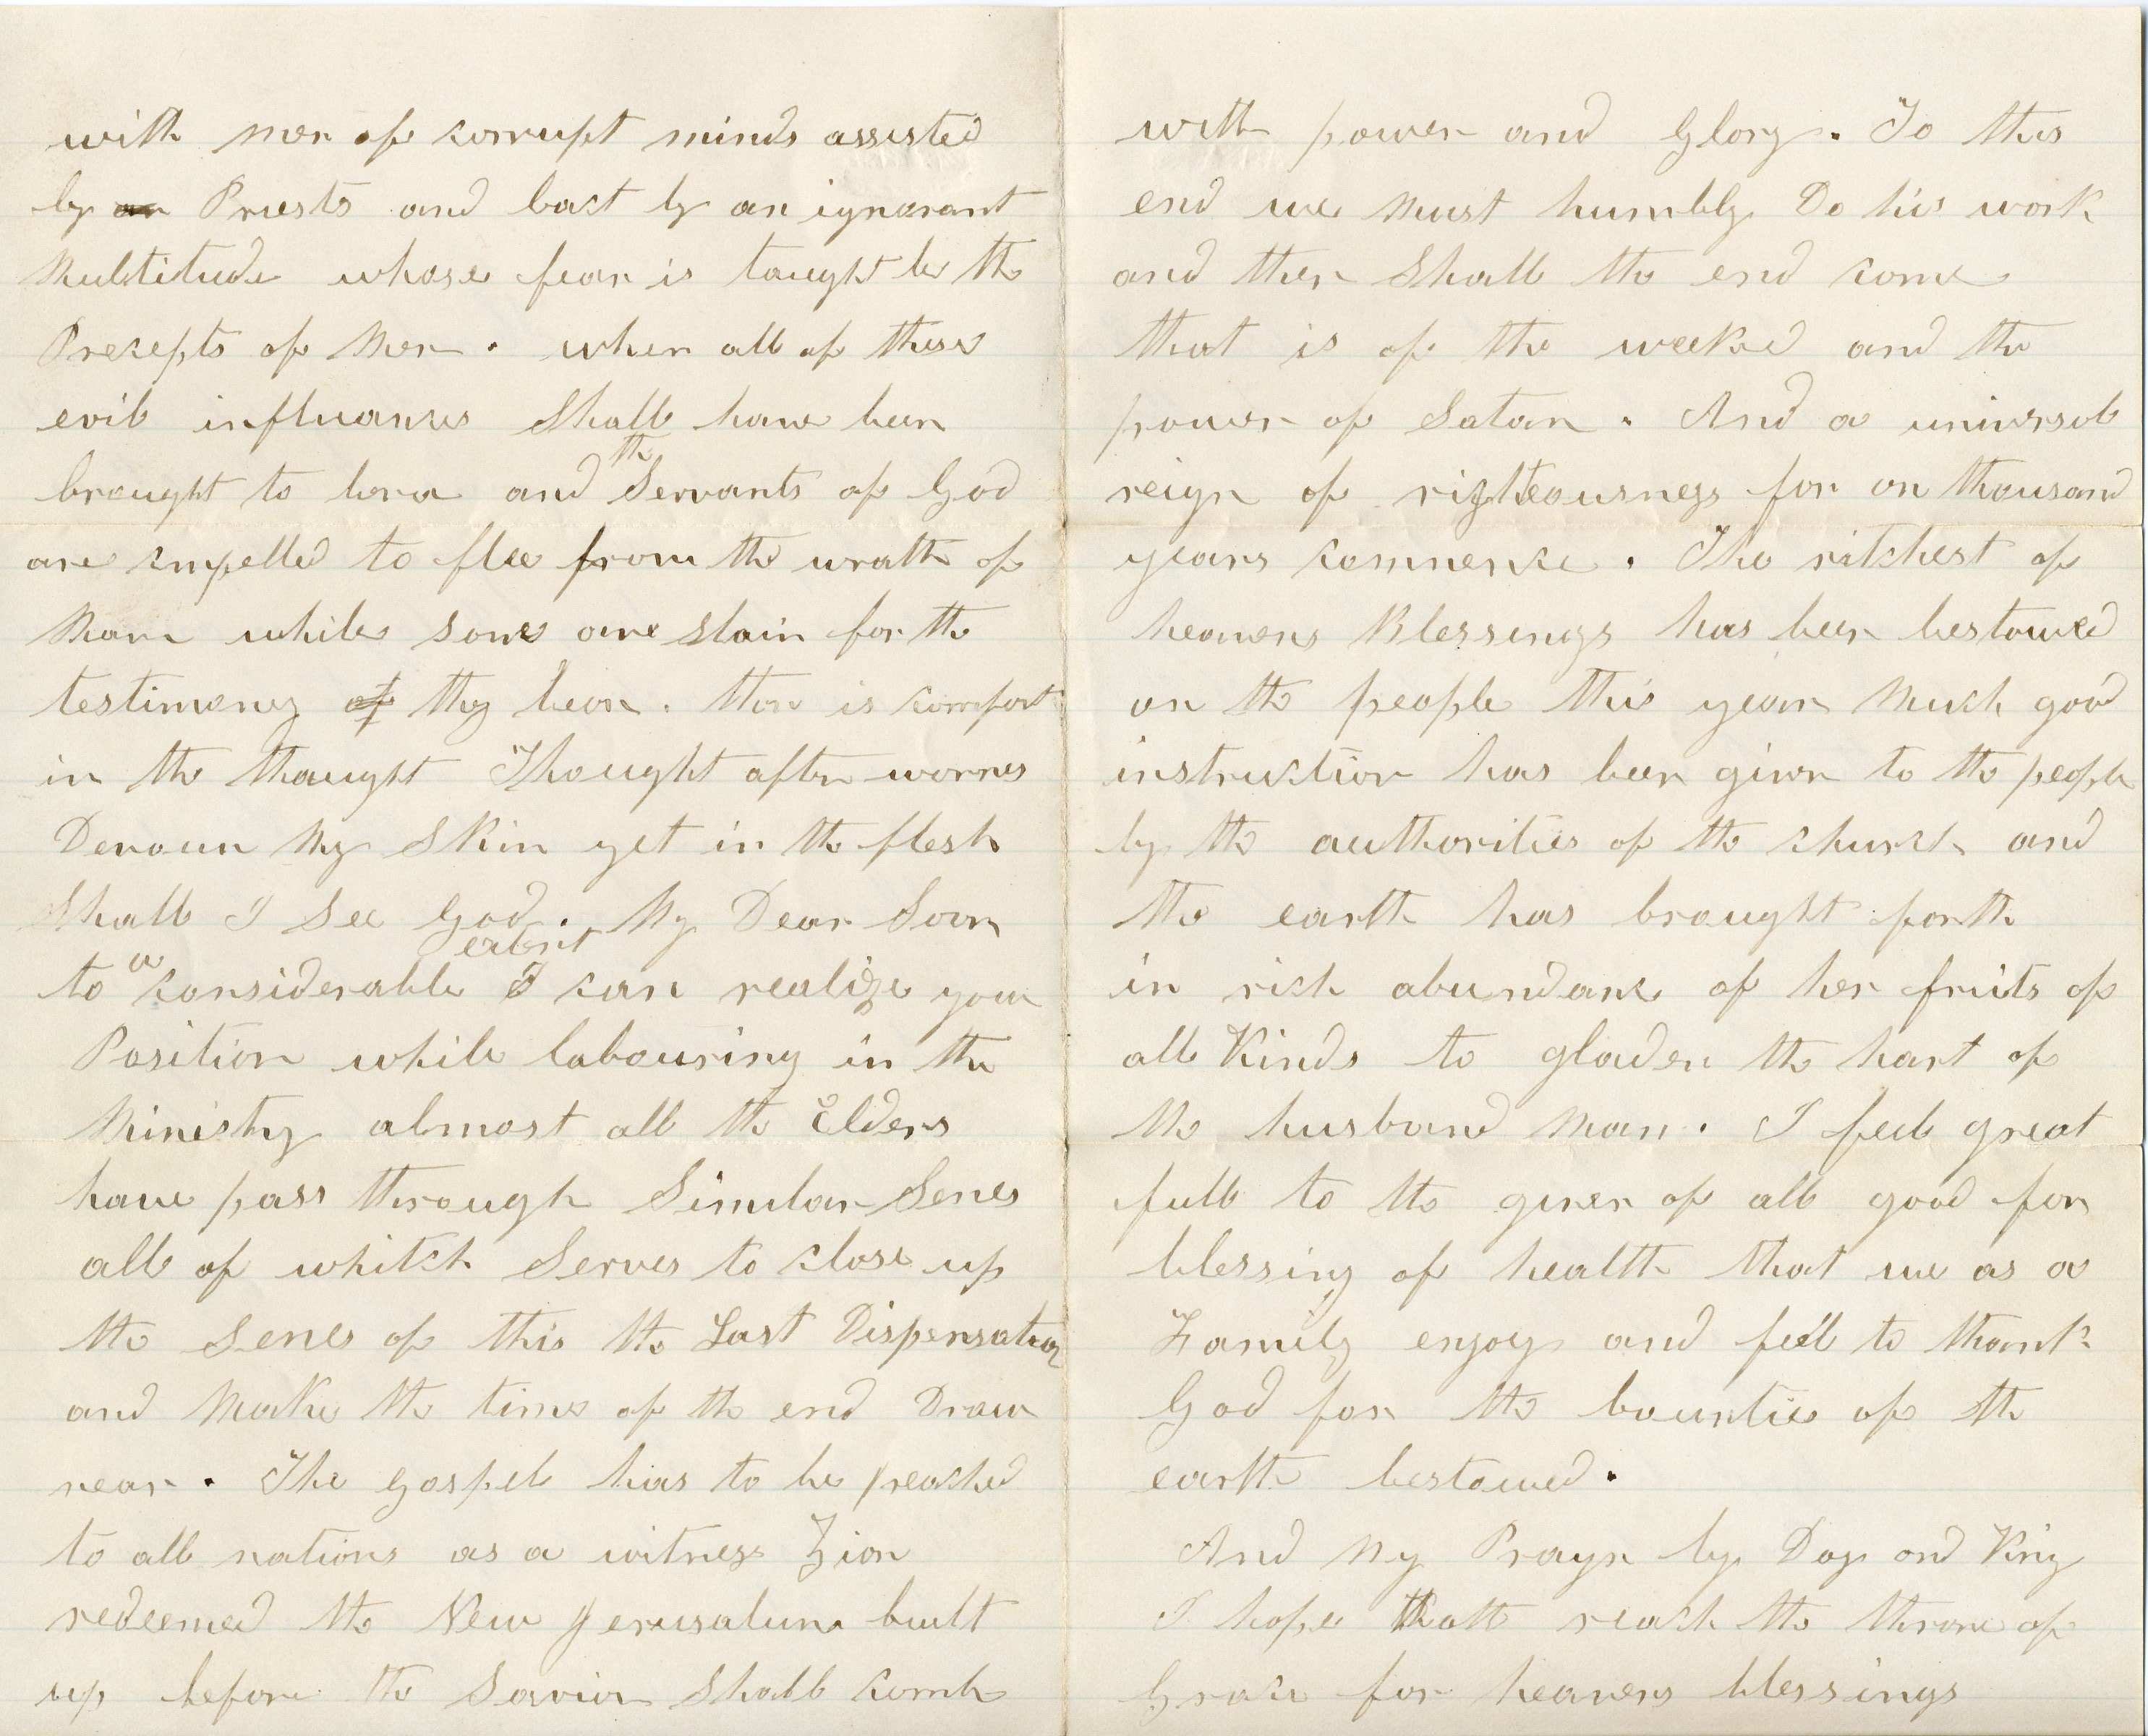 with men of corrupt minds assisted
by an Priests and backt by an ignorant
Multitude whose fear is taught by the
Precepts of Men. when all of these
evil influances Shall have been
brought to bera and the Servants of God
are impelled to flee from the wrath of
Man while some are slain for the
testimoney of they bear. their is comfort
in the thaught Thought after wormes
Devour My Skin yet in the flesh
Shall I See God. My Dear Soon
to a considerable extent I can realize your
Position while labouring in the
Ministry almost all the Elders
have pass through Simular Senes
all of whitch Serves to close up
the Senes of this the Last Dispensation
and Make the time of the end Draw
near. The gospel has to be preached
to all nations as a witness Zion
redeemed the New Jerusalum built
up before the Savior Shall comb
with power and Glory. To this
end we Must humbly Do his work
and then Shall the end come
that is of the weeked and the
power of Satan. And a universal
reign of righteousness for on thousand
years commence. The ritchest of
heavens Blessings has been bestowed
on the people this year Much good
instruction has been given to the people
by the authorities of the church and
the earth has brought forth
in rich abundanc of her fruits of
all Kinds to gladen the hart of
the husband Man. I feel great
full to the giver of all good for
blessing of health that we as a
Family enjoy and feel to thank
God for the bounties of the
earth bestowed.
And My Prayr by Day and King
I hope that reach the throne of
Grace for heavens blessings